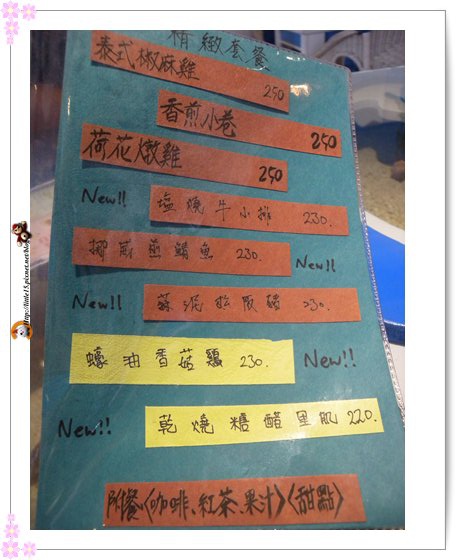 精緻套餐
泰式椒麻雞 250
香煎小卷 250
荷花燉雞 250
New!! 塩燒牛小排 230.
挪威煎鯖魚 230. New!!
New!! 蒜泥松阪豬 230
蠔油香菇雞 230. New!!
New!! 乾燒糖醋里肌 220.
附餐〈咖啡、紅茶、果汁〉〈甜點〉